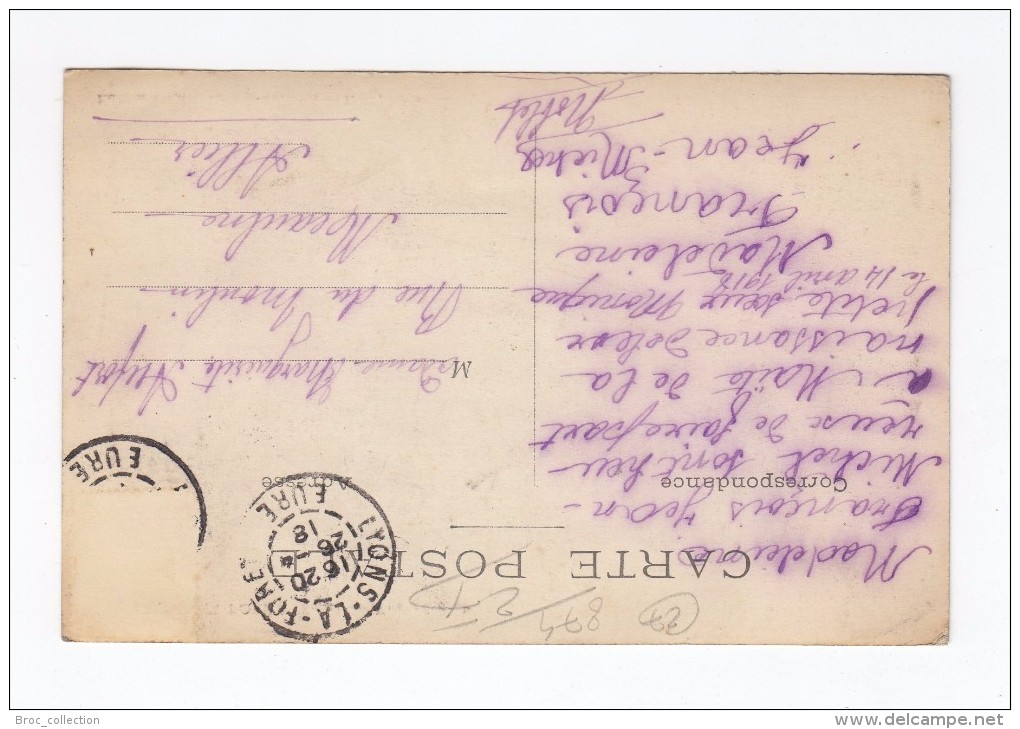 CARTE POSTALE
Correspondance
Adresse
Madeleine
François Jean-
Michel sont heu-
reuse de faire part
a Maïté de la
naissance de leur
petite sœur Monique
le 14 avril 1918
Madeleine
François
Jean-Michel
M
Madame Marguerite
Rue du Moulin
Meaulne
Allier
LYONS-LA-FORET
16 20
26 - 4
18
EURE
EURE
27
874
Broc_collection
http://www.delcampe.net